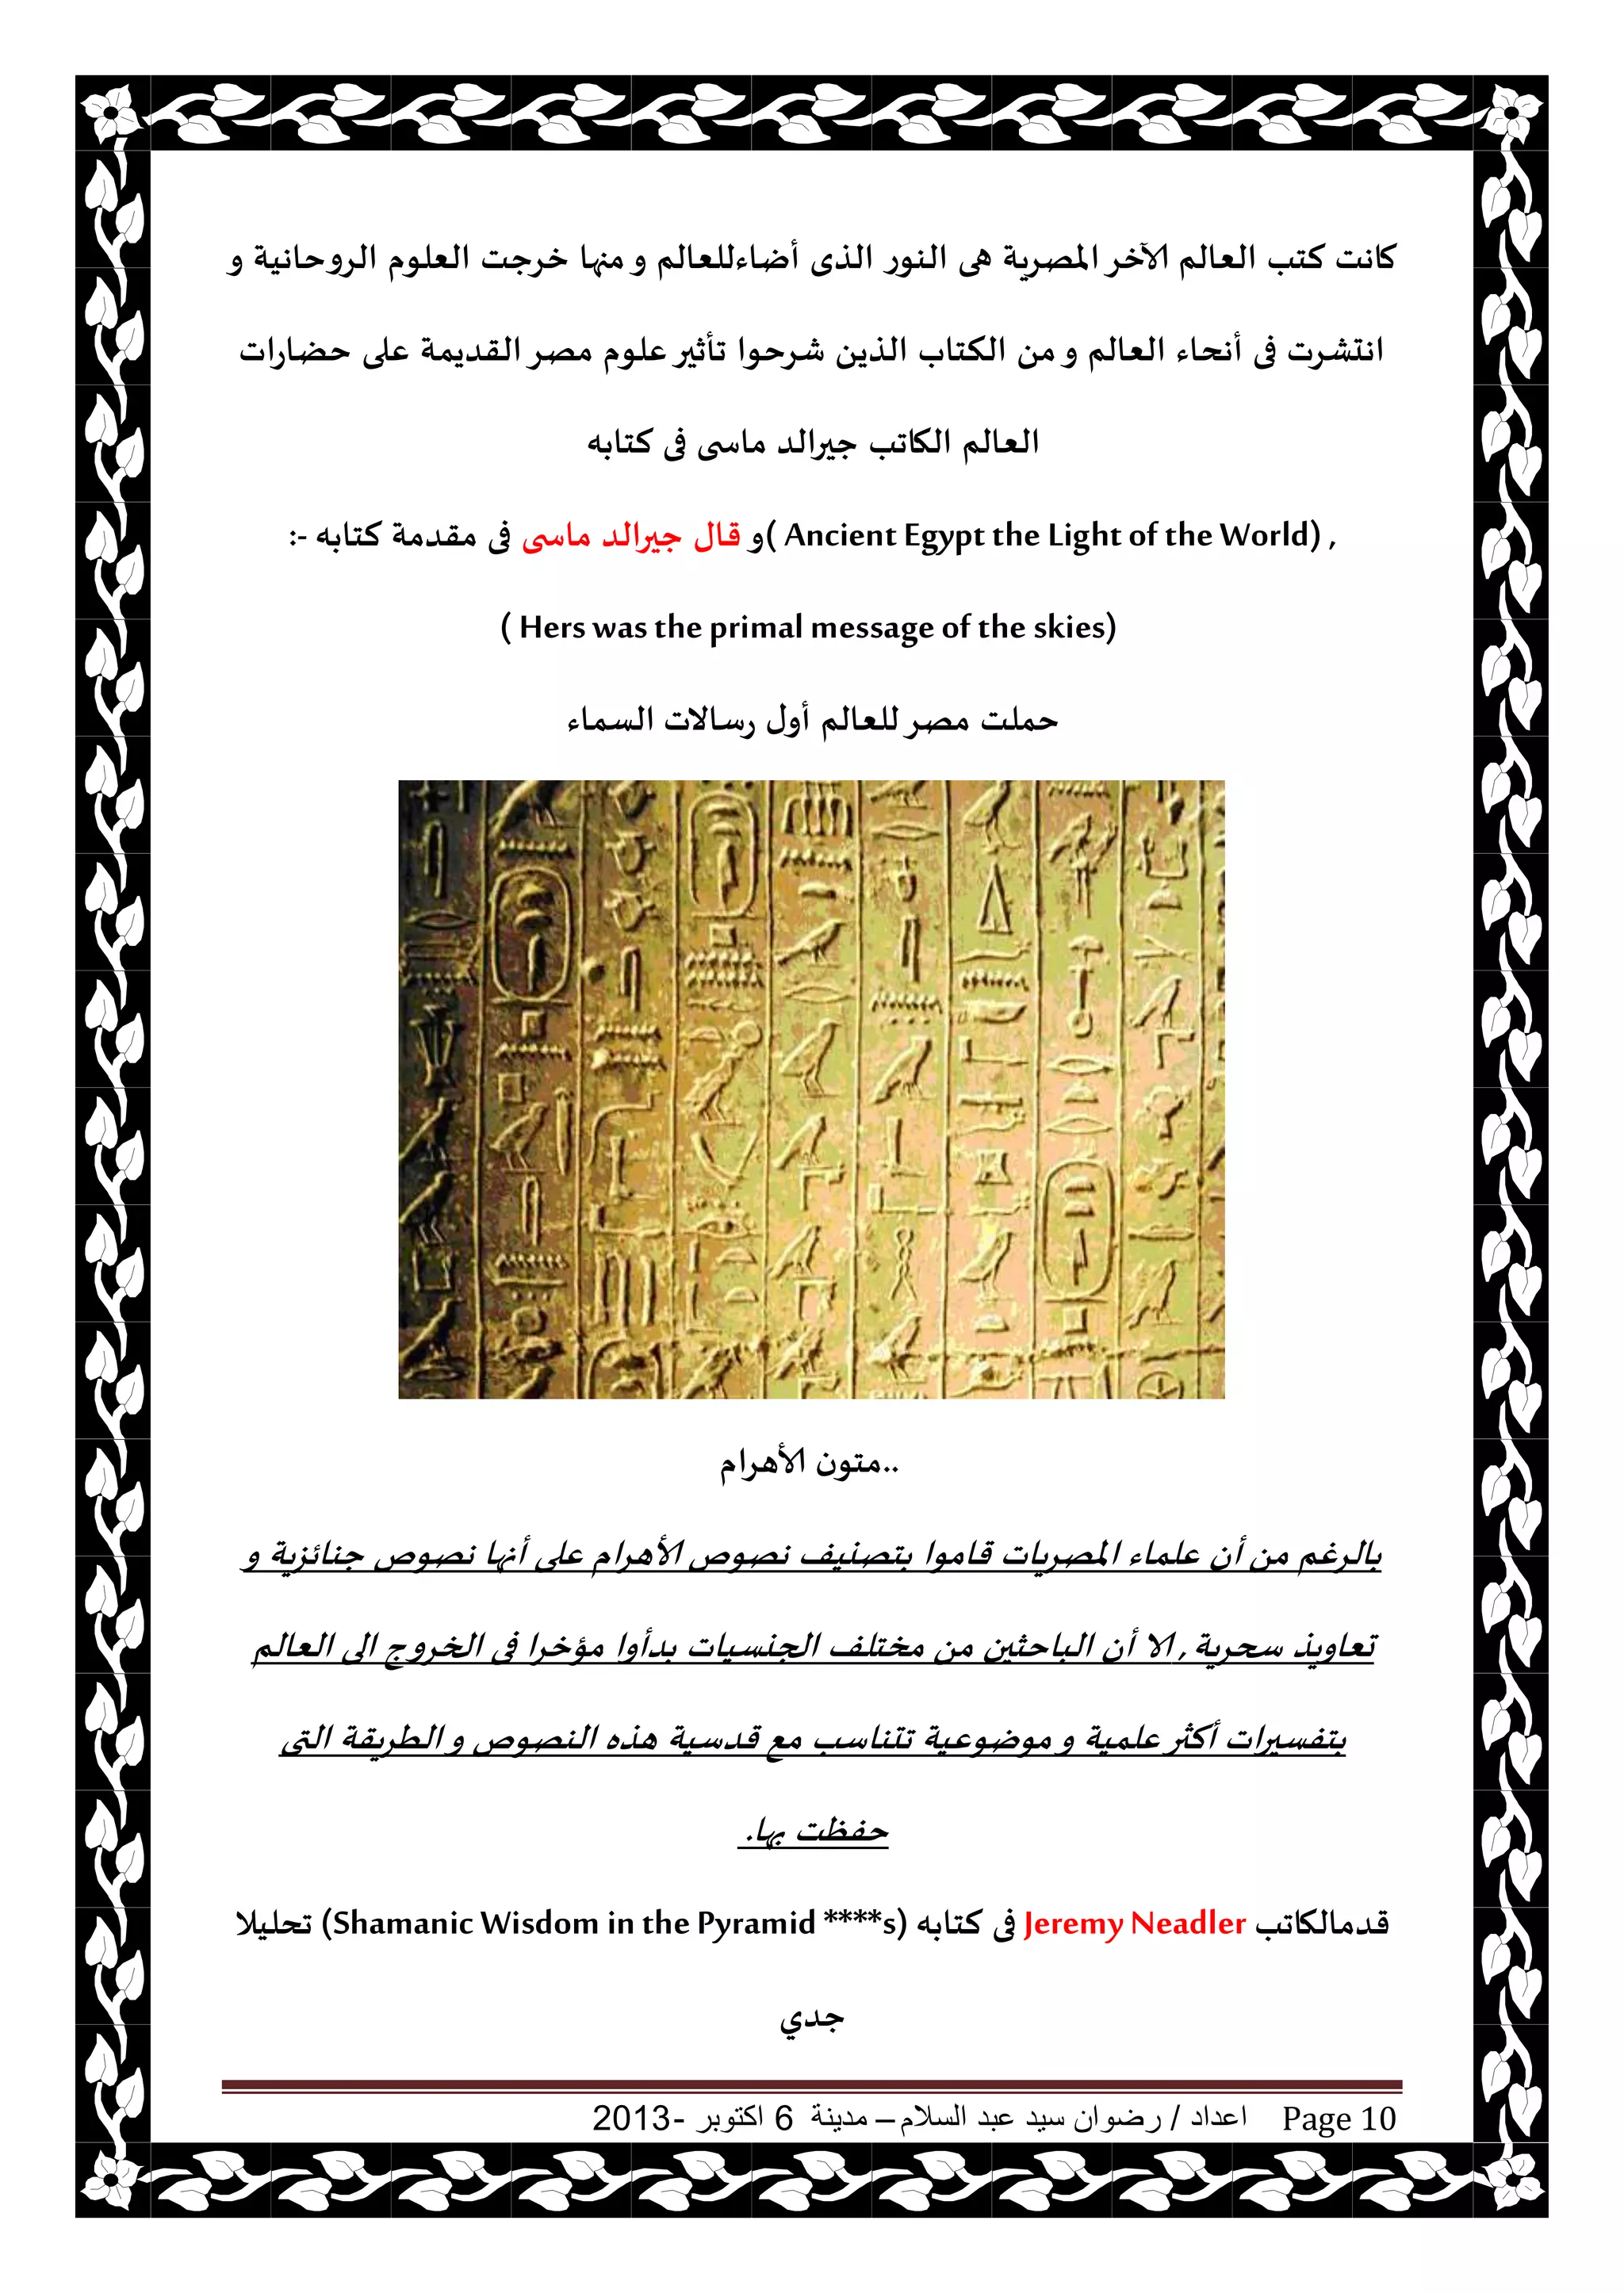 كانت كتب العالم الآخر المصرية هى النور الذى أضاءللعالم و منها خرجت العلوم الروحانية و
انتشرت فى أنحاء العالم و من الكتاب الذين شرحوا تأثير علوم مصر القديمة على حضارات
العالم الكاتب جيرالد ماسى فى كتابه
, (Ancient Egypt the Light of the World )و قال جيرالد ماسى فى مقدمة كتابه -:
( Hers was the primal message of the skies)
حملت مصر للعالم أول رسالات السماء
..متون الأهرام
بالرغم من أن علماء المصريات قاموا بتصنيف نصوص الأهرام على أنها نصوص جنائزية و
تعاويذ سحرية , الا أن الباحثين من مختلف الجنسيات بدأوا مؤخرا فى الخروج الى العالم
بتفسيرات أكثر علمية و موضوعية تتناسب مع قدسية هذه النصوص و الطريقة التى
حفظت بها.
قدمالكاتب Jeremy Neadler فى كتابه (Shamanic Wisdom in the Pyramid ****s) تحليلا
جدي
Page 10 اعداد / رضوان سيد عبد السلام – مدينة 6 اكتوبر - 2013